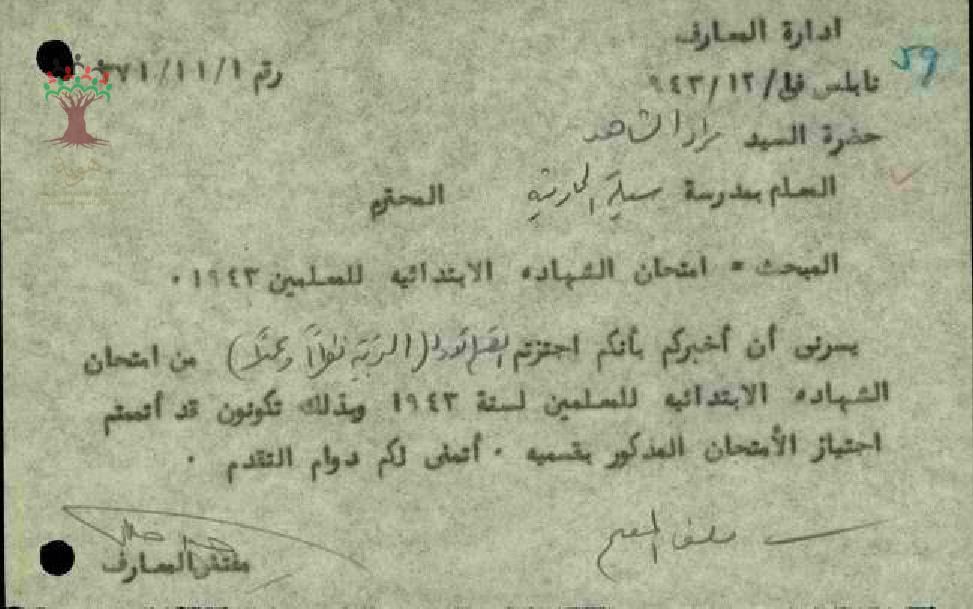 ادارة المعارف
59
نابلس في / ١٢ / ٩٤٣
رقم ١ / ١١ / ٧١
حضرة السيد مراد الشاهد
المعلم بمدرسة سيلة الحارثية المحترم
المبحث = امتحان الشهاده الابتدائيه للمعلمين ١٩٤٣ ٠
يسرنى أن أخبركم بأنكم اجتزتم القسم الأول (التربية نظرًا وعملًا) من امتحان
الشهاده الابتدائيه للمعلمين لسنة ١٩٤٣ وبذلك تكونون قد أتممتم
اجتياز الأمتحان المذكور بقسميه ٠ أتمنى لكم دوام التقدم ٠
ملف المعلم
مفتش المعارف
هوية